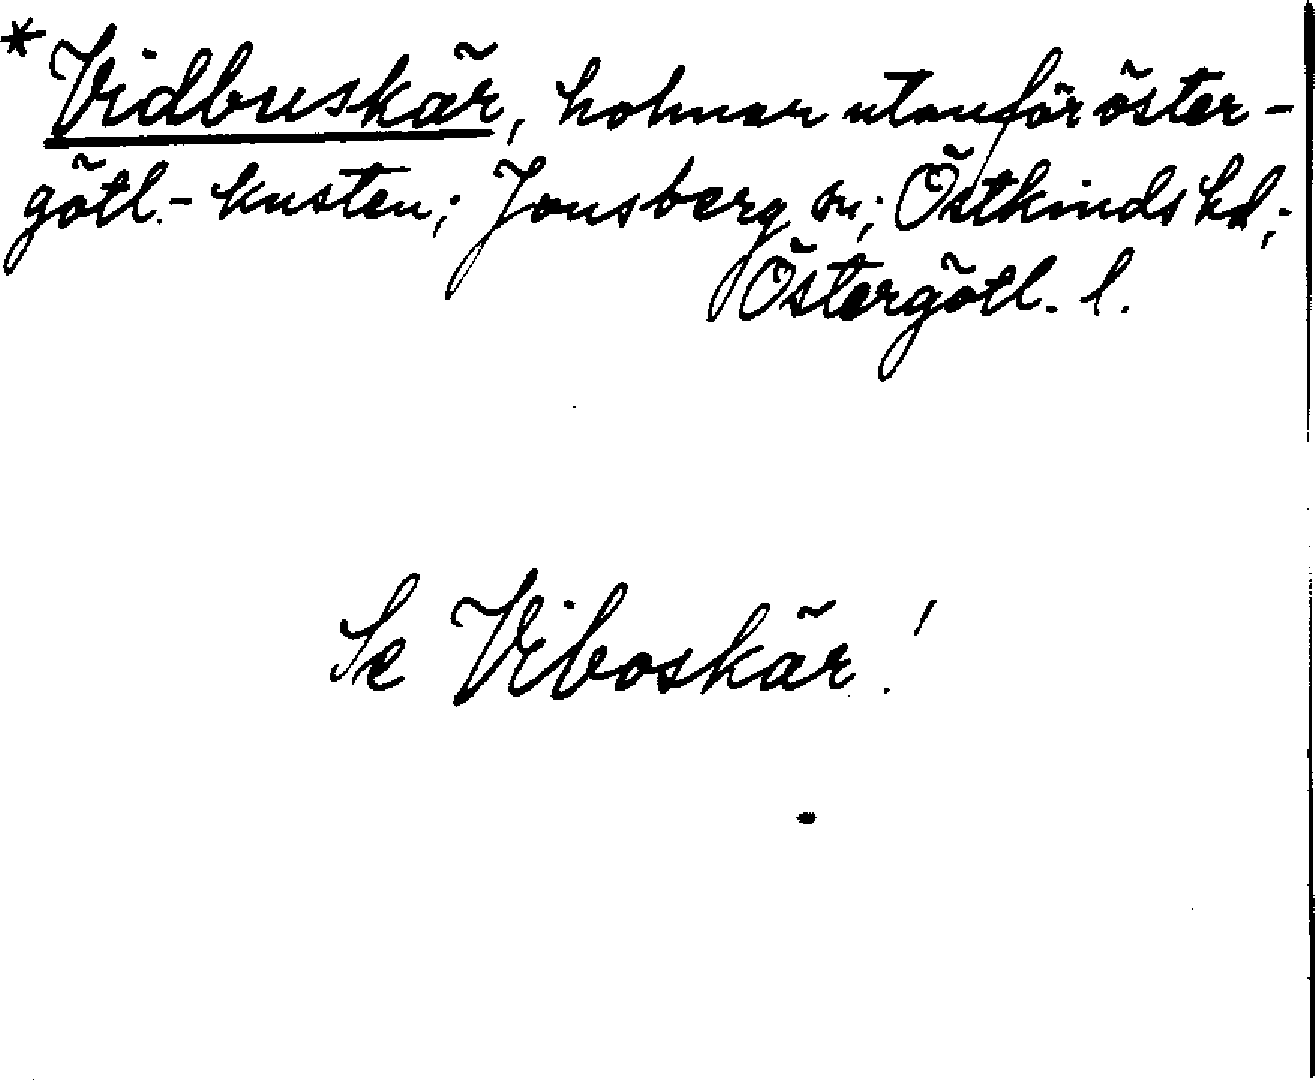 * Vidbuskär, holmar utanför öster-
götl.- kusten; Jonsberg sn; Östkinds hd;
Östergötl. l.
Se Viboskär!